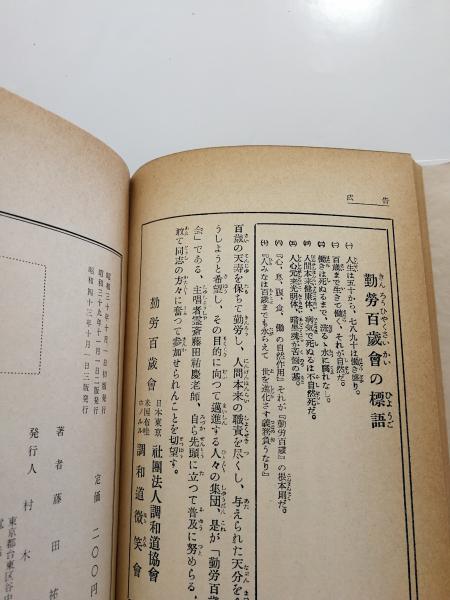 広告
勤労百歳會の標語
㈠ 人生は五十から、七八九十は働き盛り。
㈡ 百歳まで生きて働く、それが自然だ。
㈢ 働きは死ぬるまで、流るゝ水に腐れなし。
㈣ 人間本来健康体、病気で死ぬるは不自然だ。
㈤ 人心元来光明体、暗黒魂が苦悩の基。
㈥ 『心、息、腹、食、働の自然作用』それが『勤労百歳』の根本則だ。
㈦ 『人みなは百歳までも永らえて 世を進化さす義務負うなり』
百歳の天寿を保ちて勤労し、人間本来の職責を尽くし、与えられた天分を全
うしようと希望し、その目的に向つて邁進する人々の集団、是が「勤労百歳
会」である、主唱者霊斎藤田祐慶老師、自ら先頭に立つて普及に努めらる、
敢て同志の方々に奮つて参加せられんことを切望す。
勤労百歳會
日本東京 社團法人調和道協會
米国布哇ホノルル 調和道微笑會
昭和三十九年十月一日初版発行
昭和三十九年十一月一日二版発行
昭和四十三年十月一日三版発行
定価 二〇〇円
著者 藤田祐
発行人 村木
東京都台東区谷中